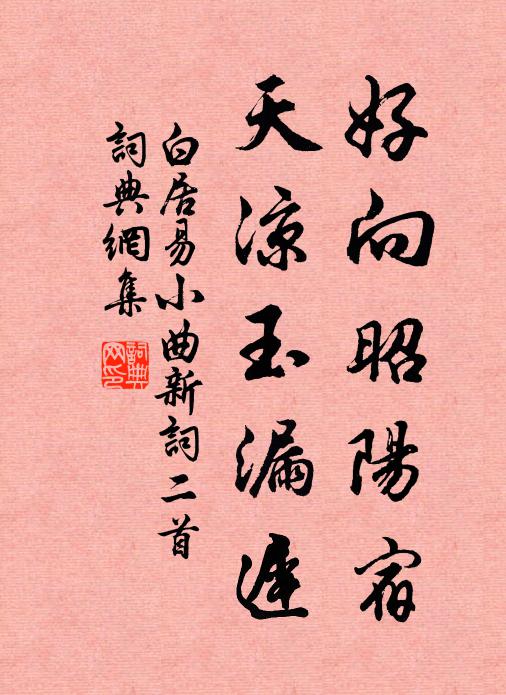 好向昭陽宿
天涼玉漏遲
白居易小曲新詞二首
詞典網集
詞典网印